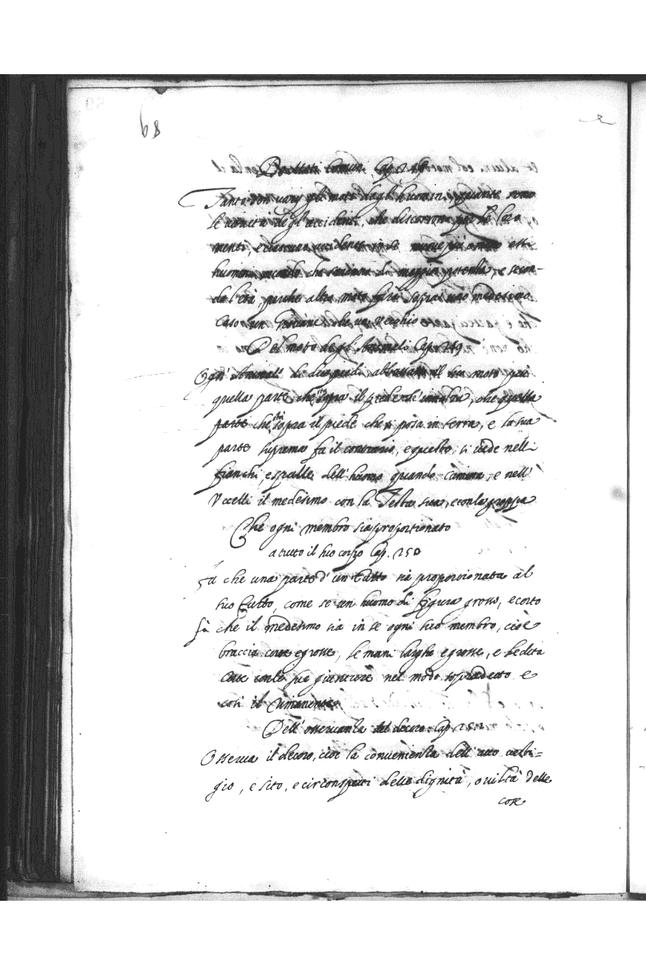 68
De moti comuni Cap. 248
Tanto son varij gli moti degli huomini, quante sono
le varietà degli accidenti, che discorrono per le loro
menti, e ciascun accidente in se muove più o meno essi
huomini secondo che saranno di maggior potenza, e secon-
do l'età, perche altro moto farà sopra uno medesimo
caso un Giovane, che un vecchio
Del moto degli Animali Cap. 249
Ogni Animale di due piedi abbassa il suo moto più
quella parte che sta sopra il piede che innalza, che quella
parte che sta sopra il piede che si posa in terra, e la sua
parte suprema fa il contrario, e questo si vede nelli
fianchi, e spalle dell'huomo quando camina, e nell'
Vccelli il medesimo con la Testa sua, e con la groppa
Che ogni membro sia proportionato
a tutto il suo corpo Cap. 250
Fà che una parte d'un Tutto sia proporsionata al
suo Tutto, come se un huomo di figura grosso, e corto
fà che il medesimo sia in se ogni suo membro, cioè
braccia corte e grosse, le mani larghe e grosse, e le dita
corte con le sue giunture nel modo sopradetto e
così il rimanente
Dell'osservanza del decoro Cap. 251
Osserva il decoro, cioe la convenienza dell'atto vesti-
gio, e sito, e circonspetti della dignità, o viltà delle
cose